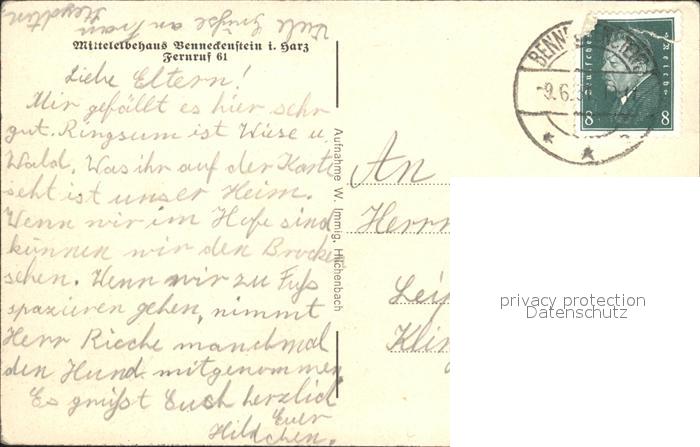 Viele Grüße an Frau
Mittelelbehaus Benneckenstein i. Harz
Fernruf 61
Liebe Eltern!
Mir gefällt es hier sehr
gut. Ringsum ist Wiese u.
Wald. Was ihr auf der Karte
seht ist unser Heim.
Wenn wir im Hofe sind
können wir den Brocke
sehen. Wenn wir zu Fuß
spazieren gehen, nimmt
Herr Ricche manchmal
den Hund mitgenommen
Es grüßt Euch herzlich
Euer
Hildchen.
Aufnahme W. Immig, Hilchenbach
An
Herrn
Leip
Klin
BENNE
-9.6.3
Deutsches Reich
8 8
privacy protection
Datenschutz